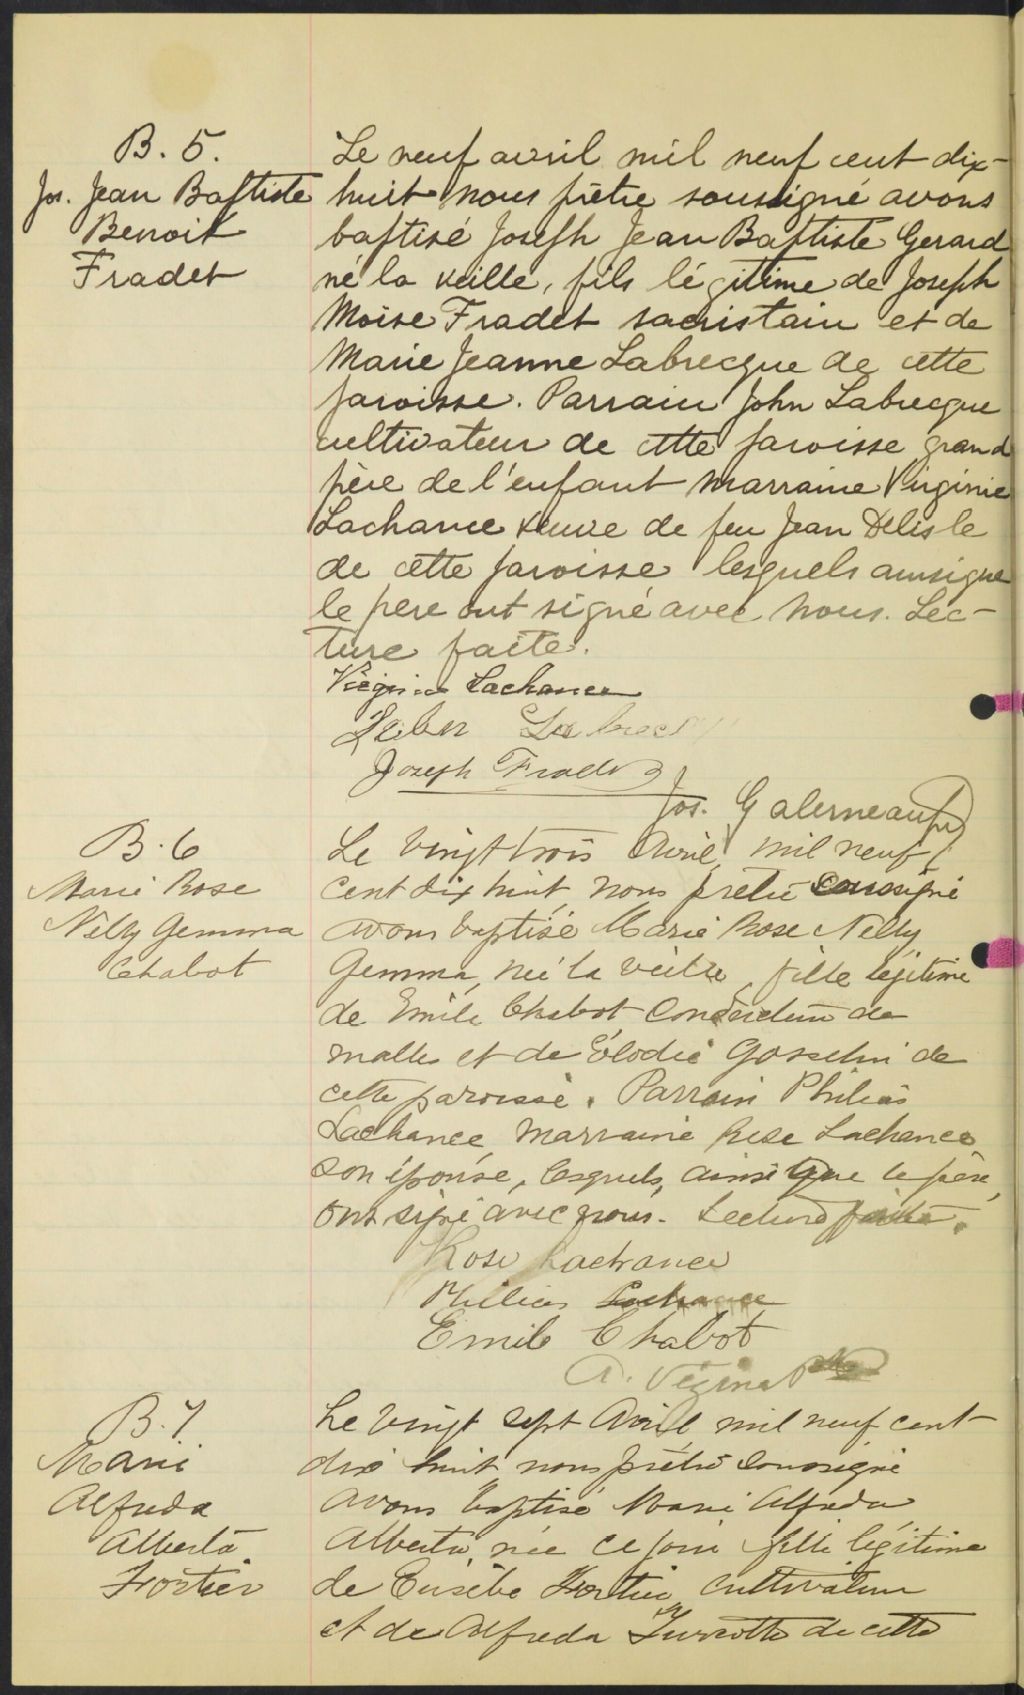 B. 5.
Jos. Jean Baptiste
Benoit
Fradet
Le neuf avril mil neuf cent dix-
huit nous prêtre soussigné avons
baptisé Joseph Jean Baptiste Gerard
né la veille, fils légitime de Joseph
Moïse Fradet sacristain et de
Marie Jeanne Labrecque de cette
paroisse. Parrain John Labrecque
cultivateur de cette paroisse grand
père de l'enfant marraine Virginie
Lachance veuve de feu Jean Delisle
de cette paroisse lesquels ainsique
le père ont signé avec nous. Lec-
ture faite.
Virginie Lachance
Joseph Fradet
Jos. Galerneau ptre
B. 6
Marie Rose
Nelly Gemma
Chabot
Le vingt trois Avril mil neuf
cent dix huit, nous prêtre soussigné
avons baptisé Marie Rose Nelly
Gemma, née la veille, fille légitime
de Emile Chabot conducteur de
malle et de Élodie Gosselin de
cette paroisse. Parrain Philias
Lachance, marraine Rose Lachance
son épouse, lesquels, ainsi que le père,
ont signé avec nous. Lecture faite.
Rose Lachance
Philias Lachance
Emile Chabot
A. Vézina Ptre
B. 7
Marie
Alfreda
Alberta
Fortier
Le vingt sept Avril mil neuf cent
dix huit nous prêtre soussigné
avons baptisé Marie Alfreda
Alberta, née ce jour fille légitime
de Eusèbe Fortier, cultivateur
et de Alfreda Turcotte de cette